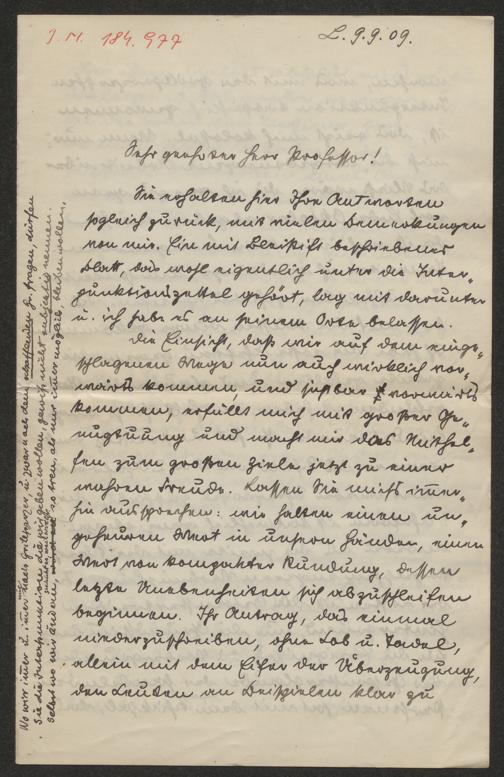 J. N. 184.977
L. 9.9.09.
Sehr geehrter Herr Professor!
Sie erhalten hier Ihre Antworten
sogleich zurück, mit vielen Bemerkungen
von mir. Ein mit Bleistift beschriebenes
Blatt, das wohl eigentlich unter die Inter-
punktionszettel gehört, lag mit darunter
u. ich habe es an seinem Orte belassen.
Die Einsicht, daß wir auf dem einge-
schlagenen Wege nun auch wirklich vor-
wärts kommen, und sichtbar vorwärts
kommen, erfüllt mich mit großer Ge-
nugtuung und macht mir das Mithel-
fen zum großen Ziele jetzt zu einer
wahren Freude. Lassen Sie mich's immer-
hin aussprechen: wir halten einen un-
geheuren Wert in unsern Händen, einen
Wert von kompakter Rundung, dessen
letzte Unebenheiten sich abzuschleifen
beginnen. Ihr Antrag, das einmal
niederzuschreiben, ohne Lob u. Tadel,
allein mit dem Eifer der Überzeugung,
den Leuten an Beispielen klar zu
Wo wir immer u. immer nach Grillparzer, u. zwar nach dem Gr. fragen, dürfen
Sie die Interpunktion die wir geben wollen, gewiß nicht subjektiv nennen.
Selbst wo wir ändern, so treu, als nur immer möglich, bleiben wollen.